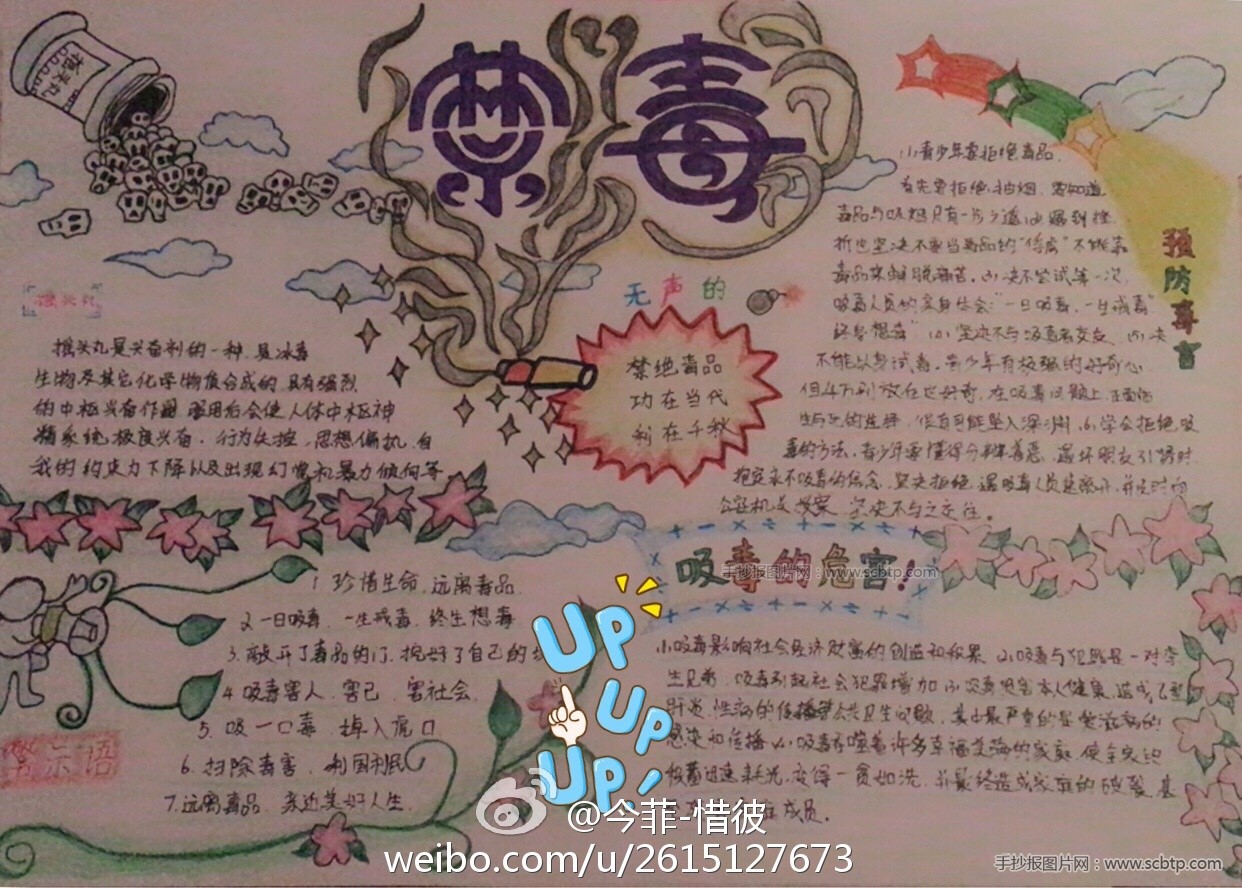 摇头丸
禁毒
无声的
禁绝毒品
功在当代
利在千秋
预防毒害
(1)青少年要拒绝毒品.
首先要拒绝抽烟.要知道,
毒品与吸烟只有一步之遥
折也坚决不要当毒品的"俘虏"不能靠
毒品来解脱痛苦.(3)决不尝试第一次,
吸毒人员的亲身体会:"一日吸毒,一生戒毒"
终身想毒"(4)坚决不与吸毒者交友.(5)决
不能以身试毒.青少年有极强的好奇心,
但千万别放任好奇,在吸毒问题上,
生与死的选择,很有可能坠入深渊.(6)学会拒绝吸
毒的方法.青少年要懂得分辨善恶.遇坏朋友引诱时
抱定永不吸毒的信念,坚决拒绝.遇吸毒人员赶紧离开,并及时向
公安机关报案,坚决不与之交往。
摇头丸
摇头丸是兴奋剂的一种,是冰毒
生物及其它化学物质合成的.具有强烈
的中枢兴奋作用 服用后会使人体中枢神
精系统极度兴奋.行为失控,思想偏执,自
我的约束力下降以及出现幻觉和暴力倾向等
1 珍惜生命.远离毒品.
2 一日吸毒,一生戒毒.终生想毒
3.敞开了毒品的门,挖好了自己的
4 吸毒害人.害己.害社会.
5.吸一口毒 掉入虎口
6.扫除毒害.利国利民
7.远离毒品.亲近美好人生.
警示语
吸毒的危害!
手抄报图片网:www.scbtp.com
(1)吸毒影响社会经济财富的创造和积累.(2)吸毒与犯罪是一对孪
生兄弟.吸毒引起社会犯罪增加.(3)吸毒危害本人健康,造成乙型
肝炎,性病的传播等公共卫生问题,其中最严重的是艾滋病的
感染和传播.(4)吸毒吞噬着许多幸福美满的家庭.使全家积
攒蓄迅速耗光,变得一贫如洗.并最终造成家庭的破裂.甚
成员.
UP
UP
UP!
@今菲-惜彼
weibo.com/u/2615127673
手抄报图片网:www.scbtp.com